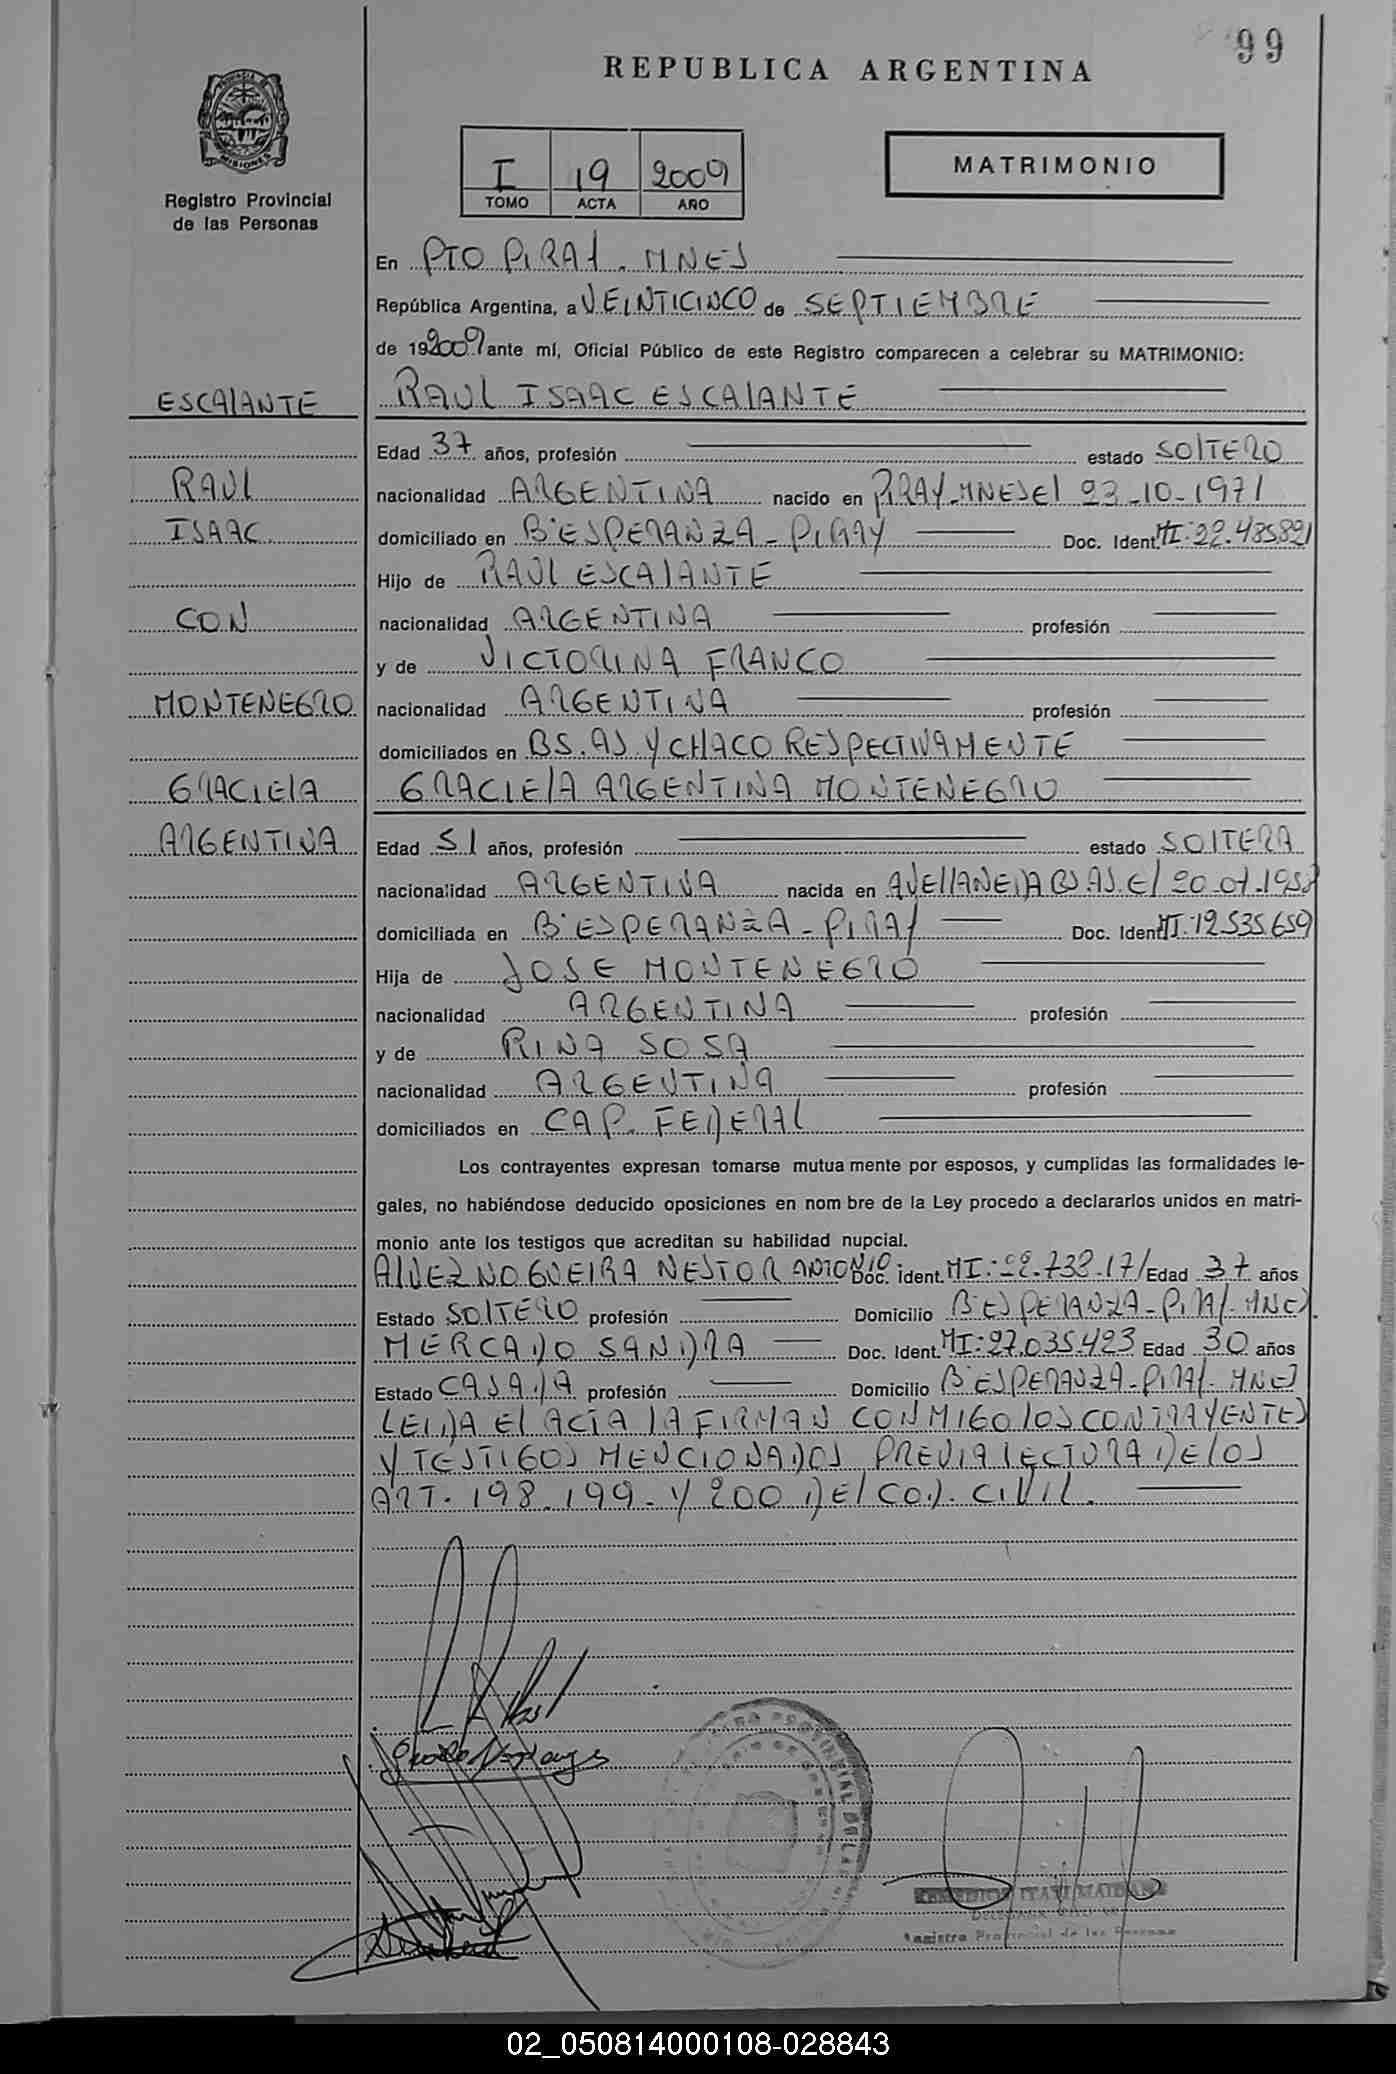 99
REPUBLICA ARGENTINA
PROVINCIA DE
MISIONES
Registro Provincial
de las Personas
I 19 2009
TOMO ACTA AÑO
MATRIMONIO
En PTO PIRAY. MNES
República Argentina, a VEINTICINCO de SEPTIEMBRE
de 192009 ante mí, Oficial Público de este Registro comparecen a celebrar su MATRIMONIO:
ESCALANTE
RAUL ISAAC ESCALANTE
Edad 37 años, profesión estado SOLTERO
RAUL
nacionalidad ARGENTINA nacido en PIRAY-MNES el 23-10-1971
ISAAC
domiciliado en B°ESPERANZA-PIRAY Doc. Ident. MI:22.435.821
Hijo de RAUL ESCALANTE
CON
nacionalidad ARGENTINA profesión
y de VICTORINA FRANCO
MONTENEGRO
nacionalidad ARGENTINA profesión
domiciliados en BS.AS. Y CHACO RESPECTIVAMENTE
GRACIELA
GRACIELA ARGENTINA MONTENEGRO
ARGENTINA
Edad 51 años, profesión estado SOLTERA
nacionalidad ARGENTINA nacida en AVELLANEDA BS.AS. el 20-07-1958
domiciliada en B°ESPERANZA-PIRAY Doc. Ident MI:12.535.659
Hija de JOSE MONTENEGRO
nacionalidad ARGENTINA profesión
y de RINA SOSA
nacionalidad ARGENTINA profesión
domiciliados en CAP. FEDERAL
Los contrayentes expresan tomarse mutua mente por esposos, y cumplidas las formalidades le-
gales, no habiéndose deducido oposiciones en nom bre de la Ley procedo a declararlos unidos en matri-
monio ante los testigos que acreditan su habilidad nupcial.
ALVEZ NOGUEIRA NESTOR ANTONIO Doc. ident. MI: Edad 37 años
Estado SOLTERO profesión Domicilio B°ESPERANZA-PIRAY-MNES.
MERCADO SANDRA Doc. Ident. MI:27.035.423 Edad 30 años
Estado CASADA profesión Domicilio B°ESPERANZA-PIRAY-MNES
LEIDA EL ACTA LA FIRMAN CONMIGO LOS CONTRAYENTES
Y TESTIGOS MENCIONADOS PREVIA LECTURA DE LOS
ART. 198.199. Y 200 DEL COD. CIVIL.
PROVINCIAL DE LA
ITATI
Registro Provincial de las Personas
02_050814000108-028843